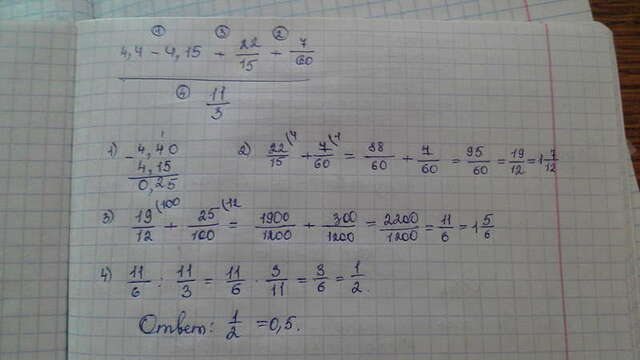 ① ③ ②
4,4 - 4,15 + 22/15 + 7/60
④ 11/3
1) - 4,40 4,15 0,25
2) 22/15 (4 + 7/60 (1 = 88/60 + 7/60 = 95/60 = 19/12 = 1 7/12
3) 19/12 (100 + 25/100 (12 = 1900/1200 + 300/1200 = 2200/1200 = 11/6 = 1 5/6
4) 11/6 : 11/3 = 11/6 · 3/11 = 3/6 = 1/2.
Ответ: 1/2 = 0,5.